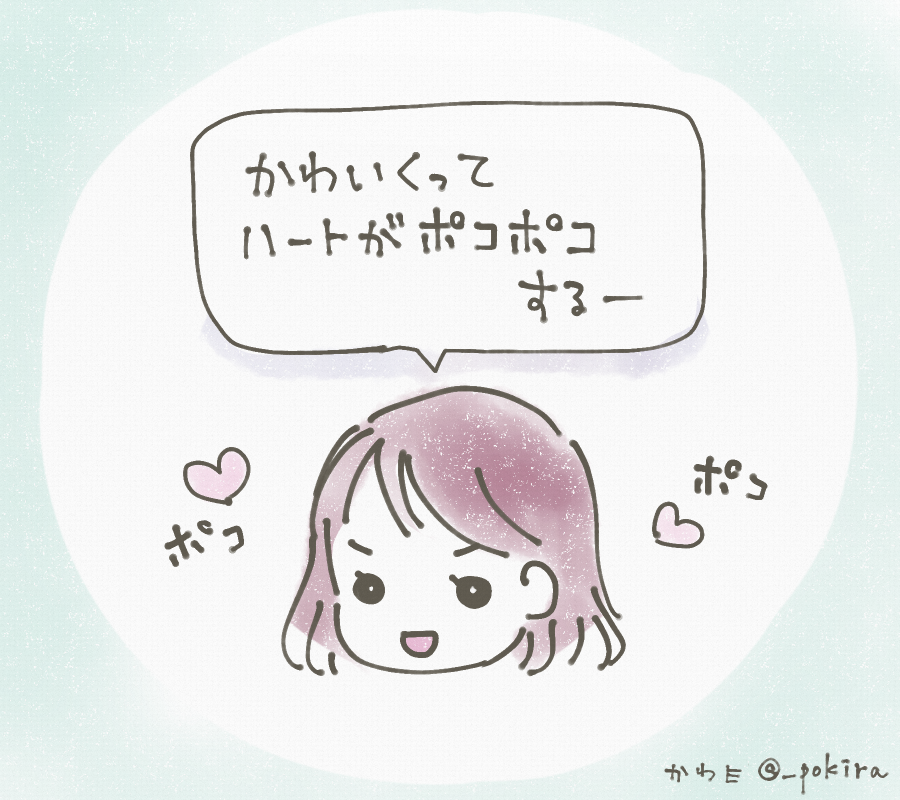 かわいくって
ハートがポコポコ
するー
ポコ
ポコ
かわE @_pokira